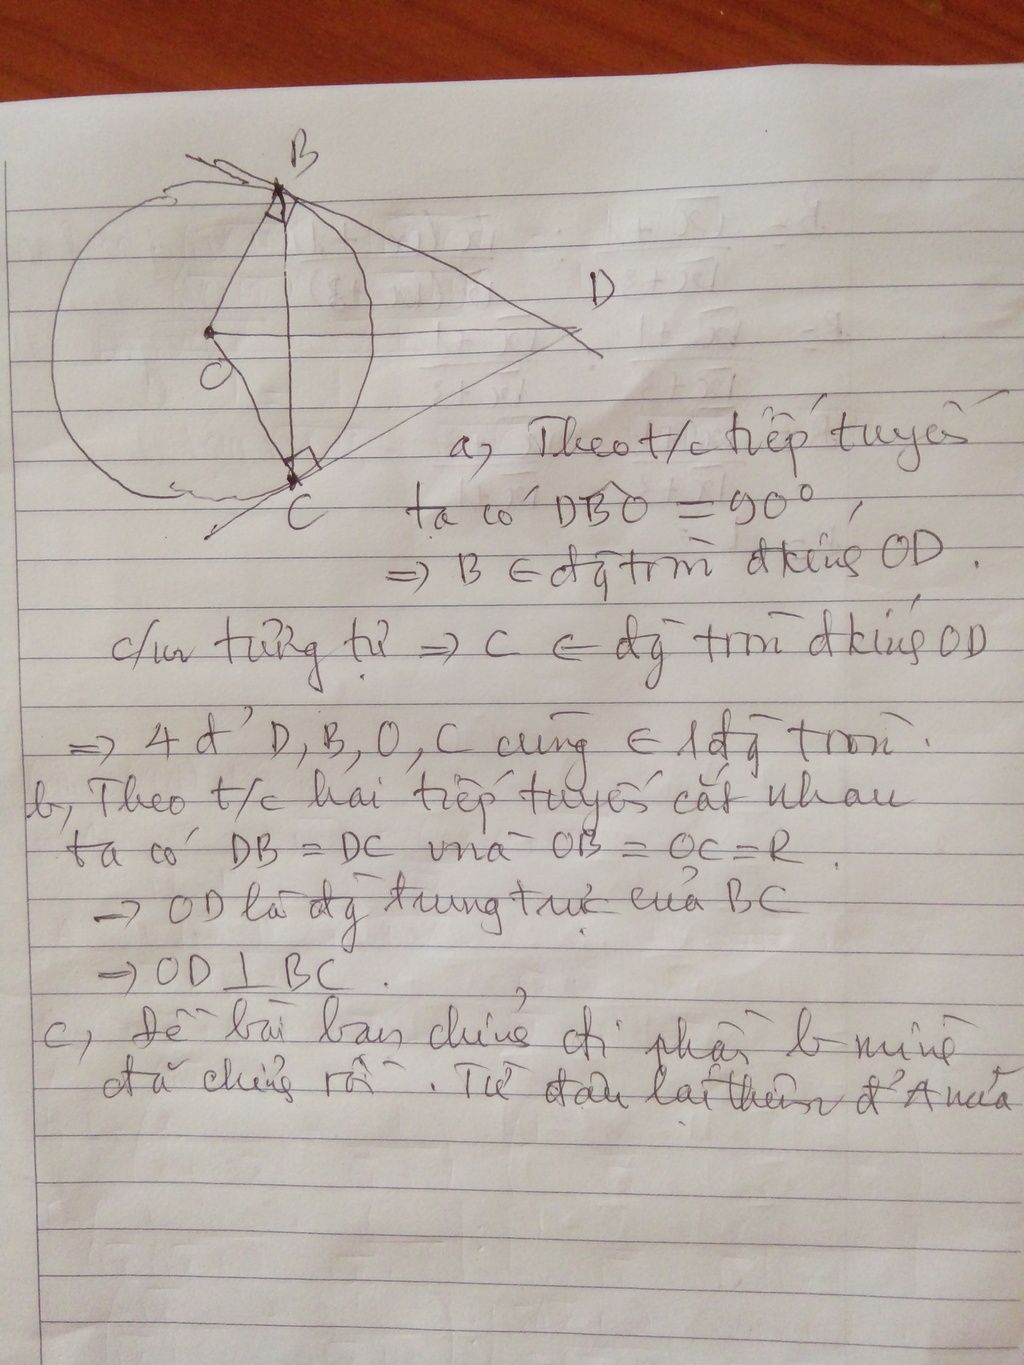 B
D
O
C
a, Theo t/c tiếp tuyến
ta có DBO = 90°,
=> B ∈ đg tròn đkính OD.
c/m tương tự => C ∈ đg tròn đkính OD
=> 4 đ' D, B, O, C cùng ∈ 1 đg tròn.
b, Theo t/c hai tiếp tuyến cắt nhau
ta có DB = DC mà OB = OC = R.
=> OD là đg trung trực của BC
=> OD ⊥ BC.
c, Đề bài bạn chứng chỉ phần b mình
đã chứng rồi. Từ đâu lại thêm đ' A nữa